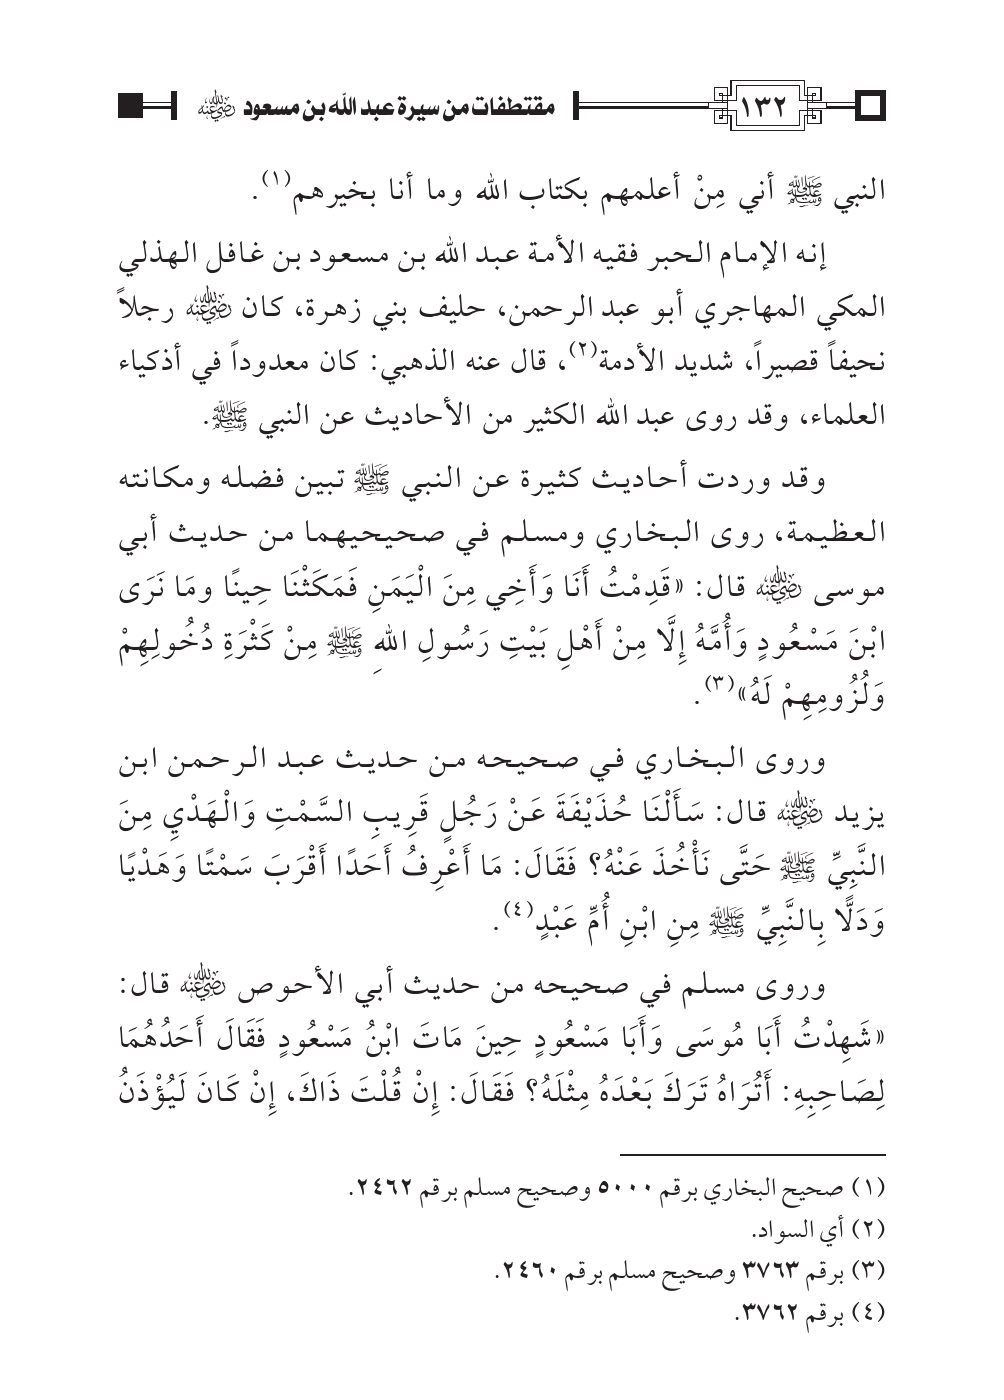 ١٣٢
مقتطفات من سيرة عبد الله بن مسعود رضي الله عنه
النبي ﷺ أني مِنْ أعلمهم بكتاب الله وما أنا بخيرهم(١).
إنه الإمام الحبر فقيه الأمة عبد الله بن مسعود بن غافل الهذلي
المكي المهاجري أبو عبد الرحمن، حليف بني زهرة، كان رضي الله عنه رجلاً
نحيفاً قصيراً، شديد الأدمة(٢)، قال عنه الذهبي: كان معدوداً في أذكياء
العلماء، وقد روى عبد الله الكثير من الأحاديث عن النبي ﷺ.
وقد وردت أحاديث كثيرة عن النبي ﷺ تبين فضله ومكانته
العظيمة، روى البخاري ومسلم في صحيحيهما من حديث أبي
موسى رضي الله عنه قال: «قَدِمْتُ أَنَا وَأَخِي مِنَ الْيَمَنِ فَمَكَثْنَا حِينًا ومَا نَرَى
ابْنَ مَسْعُودٍ وَأُمَّهُ إِلَّا مِنْ أَهْلِ بَيْتِ رَسُولِ اللهِ ﷺ مِنْ كَثْرَةِ دُخُولِهِمْ
وَلُزُومِهِمْ لَهُ»(٣).
وروى البخاري في صحيحه من حديث عبد الرحمن ابن
يزيد رضي الله عنه قال: سَأَلْنَا حُذَيْفَةَ عَنْ رَجُلٍ قَرِيبِ السَّمْتِ وَالْهَدْيِ مِنَ
النَّبِيِّ ﷺ حَتَّى نَأْخُذَ عَنْهُ؟ فَقَالَ: مَا أَعْرِفُ أَحَدًا أَقْرَبَ سَمْتًا وَهَدْيًا
وَدَلًّا بِالنَّبِيِّ ﷺ مِنِ ابْنِ أُمِّ عَبْدٍ(٤).
وروى مسلم في صحيحه من حديث أبي الأحوص رضي الله عنه قال:
«شَهِدْتُ أَبَا مُوسَى وَأَبَا مَسْعُودٍ حِينَ مَاتَ ابْنُ مَسْعُودٍ فَقَالَ أَحَدُهُمَا
لِصَاحِبِهِ: أَتُرَاهُ تَرَكَ بَعْدَهُ مِثْلَهُ؟ فَقَالَ: إِنْ قُلْتَ ذَاكَ، إِنْ كَانَ لَيُؤْذَنُ
(١) صحيح البخاري برقم ٥٠٠٠ وصحيح مسلم برقم ٢٤٦٢.
(٢) أي السواد.
(٣) برقم ٣٧٦٣ وصحيح مسلم برقم ٢٤٦٠.
(٤) برقم ٣٧٦٢.